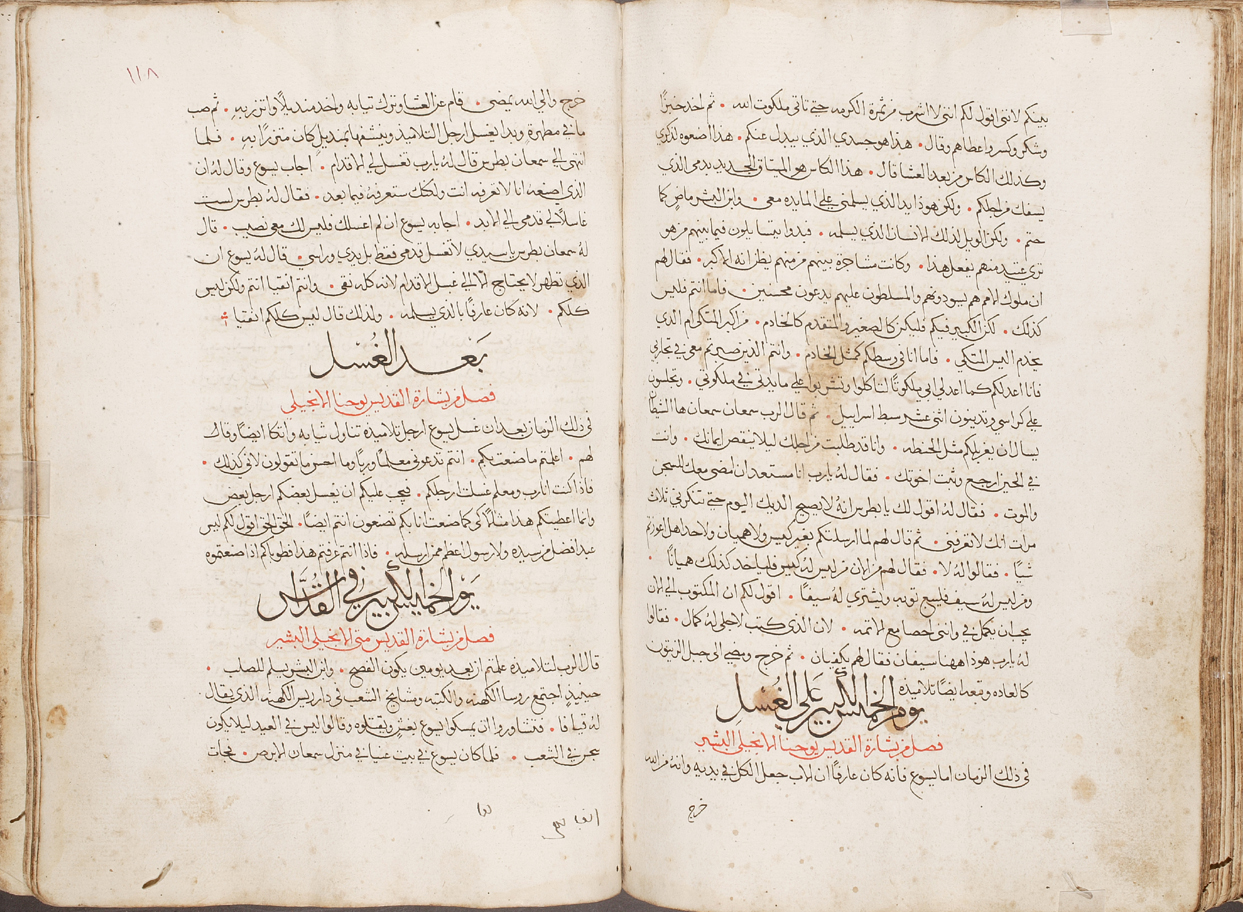 بينكم لانني اقول لكم انني لا اشرب من ثمرة الكرمه حتي تاتي ملكوت الله • ثم اخد خبزًا
وشكر وكسر واعطاهم وقال • هذا هو جسدي الذي يبدل عنكم • هذا اصنعوه لذكري
وكذلك الكاس من بعد العشا قال • هذا الكاس هو الميتاق الجديد بدمي الذي
يسفك من اجلكم • ولكن هوذا يد الذي يسلمني علي المايده معي • وابن البشر ماضٍ كما
حتم • ولكن الويل لذلك الانسان الذي يسلمه • فبدوا يتسايلون فيما بينهم من هو
تري عتيد منهم يفعل هذا • وكانت مشاجرة بينهم من منهم يظن انه الاكبر • فقال لهم
ان ملوك الامم هم يسودونهم والمسلطون عليهم يدعون محسنين • فاما انتم فليس
كذلك • لكن الكبير فيكم فليكن كالصغير والمتقدم كالخادم • من اكبر المتكي ام الذي
يخدم اليس المتكي • فاما انا في وسطكم كمثل الخادم • وانتم الذين صبرتم معي في تجاربي
فانا اعد لكم كما اعد لي ابي ملكوتًا لتاكلوا وتشربوا علي مايدتي في ملكوتي • وتجلسون
علي كراسي وتدينون اثني عشر سبط اسراييل • ثم قال الرب سمعان سمعان ها الشيطان
يسال ان يغربلكم مثل الحنطه • وانا قد طلبت من اجلك ليلا ينقص ايمانك • وانت
في الحين ارجع وثبت اخوتك • فقال له يارب انا مستعد ان امضي معك للسجن
والموت • فقال له اقول لك يا بطرس انه لا يصيح الديك اليوم حتي تنكرني ثلاث
مرات انك لا تعرفني • ثم قال لهم لما ارسلتكم بغير كيس ولا هميان ولا حدا هل اعوزتم
شيًا • فقالوا له لا • فقال لهم من الان من ليس له كيس فلياخد كذلك هميانًا •
ومن ليس له سيف فليبيع توبه وليشتري له سيفًا • اقول لكم ان المكتوب الي الان
يجب ان يكمل في وانني احصا مع الاتمه • لان الذي كتب لاجلي له كمال • فقالوا
له يارب هوذا ههنا سيفان فقال لهم يكفيان • ثم خرج ومضي الي جبل الزيتون
كالعاده وتبعه ايضًا تلاميذه
يوم الخميس الكبير علي الغسل
فصل من بشارة القديس يوحنا الانجيلي البشير
في ذلك الزمان اما يسوع فانه كان عارفًا ان الاب جعل الكل في يديه وانه من الله
خرج
١١٨
خرج والي الله يمضي • قام عن العشا وترك تيابه واخد منديلًا واتزر به • ثم صب
ما في مطهرة وبدا يغسل ارجل التلاميذ وينشفها بمنديل كان متزرًا به • فلما
انتهي الي سمعان بطرس قال له يارب تغسل لي الاقدام • اجاب يسوع وقال له ان
الذي اصنعه انا لا تعرفه انت ولكنك ستعرفه فيما بعد • فقال له بطرس لست
غاسلًا لي قدمي الي الابد • اجابه يسوع ان لم اغسلك فليس لك معي نصيب • قال
له سمعان بطرس يا سيدي لا تغسل قدمي فقط بل يدي وراسي • قال له يسوع ان
الذي تطهر لا يحتاج الا الي غسل الاقدام لانه كله نقي • وانتم انقيا انتم ولكن ليس
كلكم • لانه كان عارفًا بالذي يسلمه • ولذلك قال ليس كلكم انقيا
بعد الغسل
فصل من بشارة القديس يوحنا الانجيلي
في ذلك الزمان بعد ان غسل يسوع ارجل تلاميذه تناول تيابه واتكا ايضًا وقال
لهم • اعلمتم ما صنعت بكم • انتم تدعونني معلمًا وربًا وما احسن ما تقولون لاني كذلك •
فاذا كنت انا رب ومعلم غسلت ارجلكم • فيجب عليكم ان يغسل بعضكم ارجل بعض
وانما اعطيتكم هذا مثلًا كي كما صنعت انا بكم تصنعون انتم ايضًا • الحق الحق اقول لكم ليس
عبد افضل من سيده ولا رسول اعظم ممن ارسله • فاذا انتم عرفتم هذا فطوباكم اذا صنعتموه
يوم الخميس الكبير في القداس
فصل من بشارة القديس متي الانجيلي البشير
قال الرب لتلاميذه علمتم ان بعد يومين يكون الفصح • وابن البشر يسلم للصلب •
حينيذٍ اجتمع روسا الكهنه والكتبه ومشايخ الشعب في دار ريس الكهنه الذي يقال
له قيافا • فتشاوروا ان يمسكوا يسوع بغش ويقتلوه وقالوا ليس في العيد ليلا يكون
عجن في الشعب • فلما كان يسوع في بيت عنيا في منزل سمعان الابرص • فجات